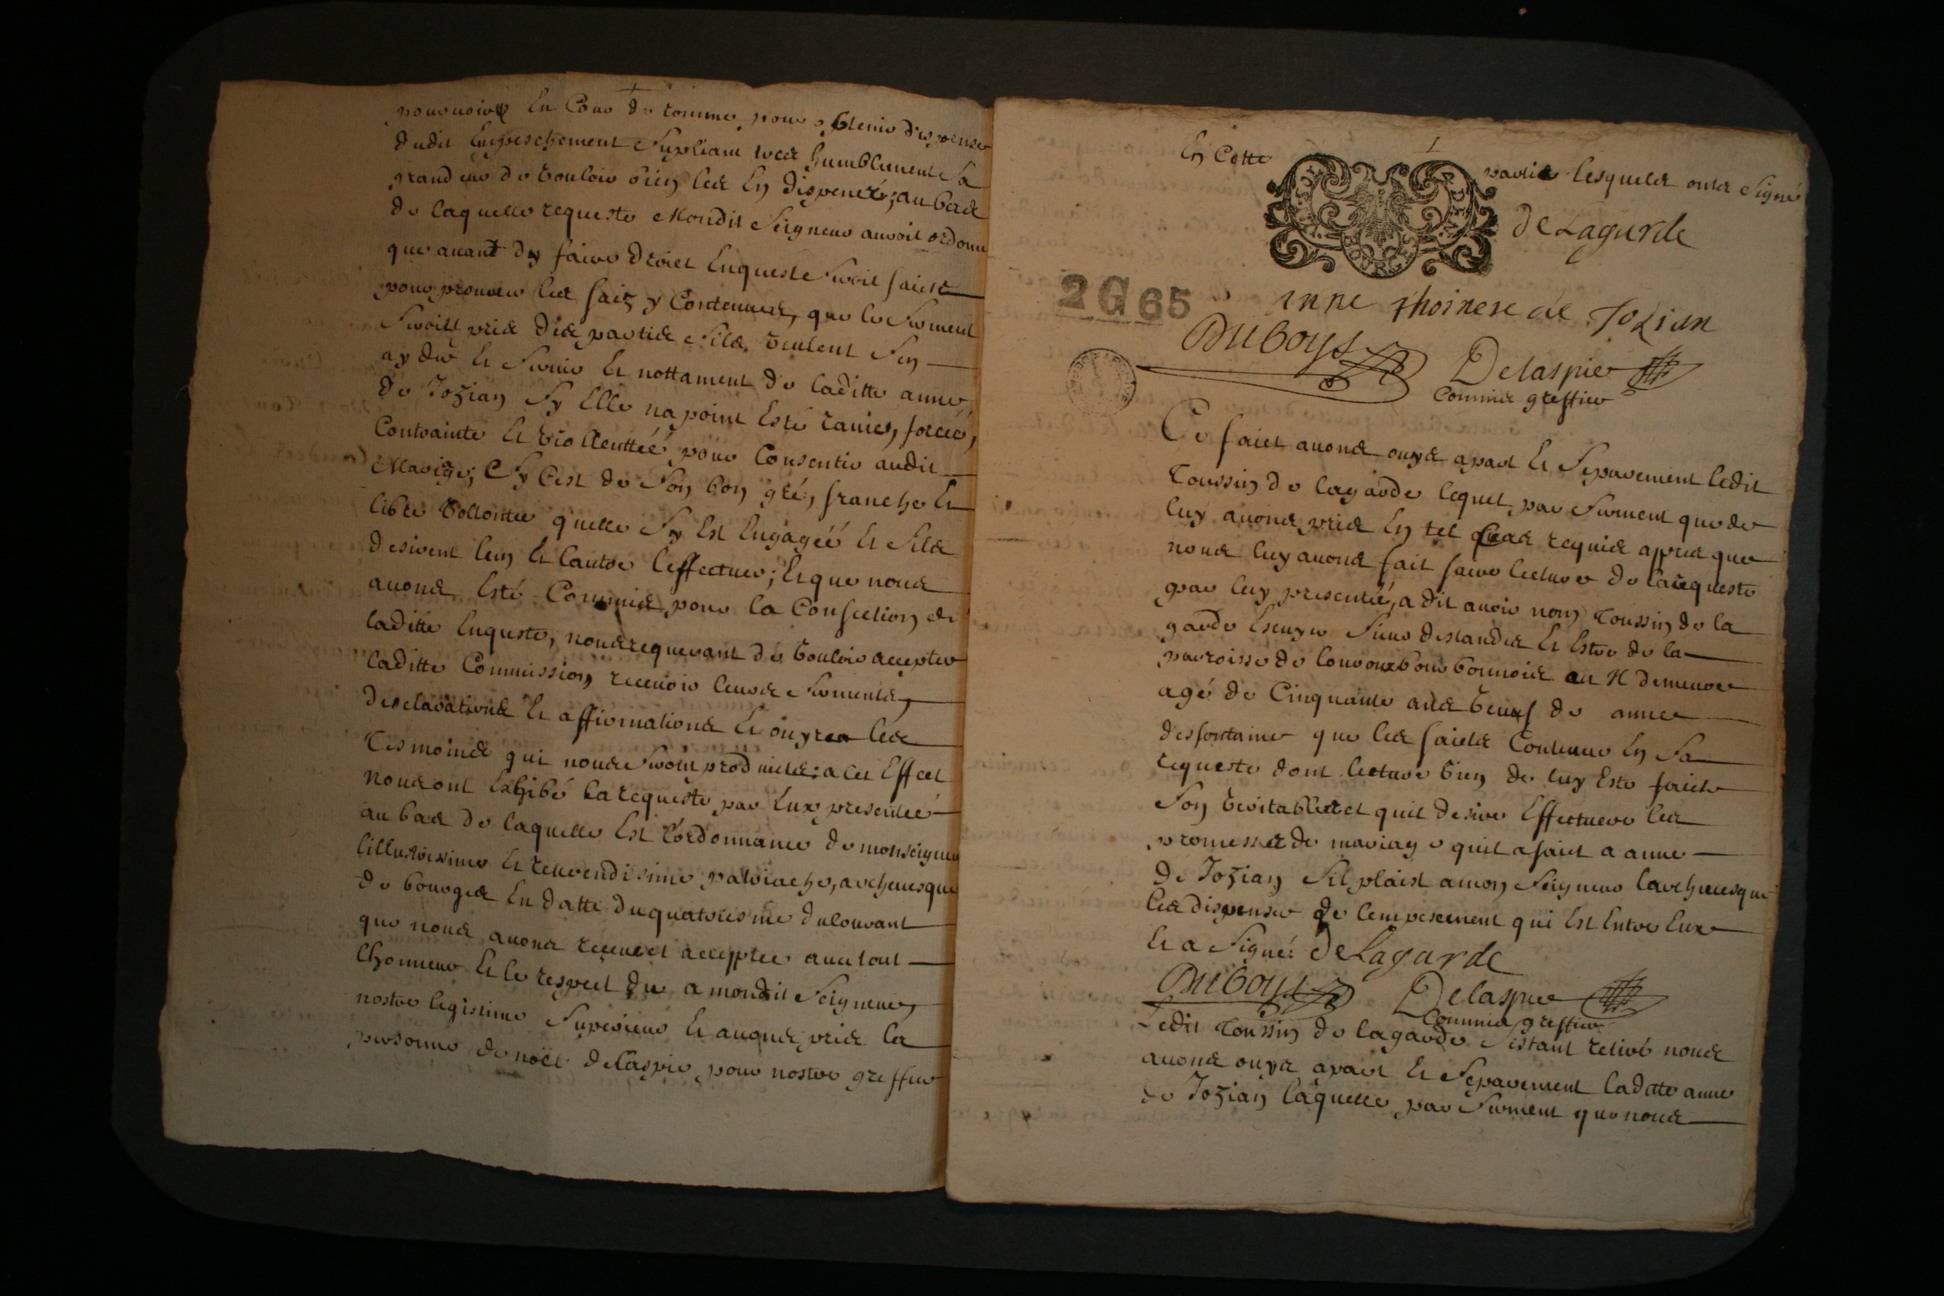 pouruoire En Cour de romme pour obtenir dispense
dudit Empeschement Supliant tres humblement Sa
grandeur de vouloir bien les En dispencer; au bas
de laquelle requeste Mondit Seigneur auroit ordonné
que auant dy faire droict Enqueste seroit faicte
pour prouuer les faitz y Contenues, que le serment
seroit pris des parties sils veulent sen
ayder et seruir et nottament de laditte anne
de Jozian sy Elle na point Esté rauies, forcée,
Contrainte et viollenttéé pour Consentir audit
Mariage; Sy Cest de son bon gré, franche et
libre vollontée quelle sy Est Engagéé et sils
desirent lun et lautre leffectuer; Et que nous
auons Esté Commis pour la Confection de
laditte Enqueste, nous requerant de vouloir accepter
laditte Commission, receuoir leurs serments,
desclarations et affirmations et ouyr les
tesmoins qui nous seront produicts: a cet Effect
nous ont Exhibé la requeste par Eux presentéé
au bas de laquelle Est l'ordonnance de monseigneur
lillustrissime et reuerendissime patriache, archeuesque
de bourges En datte du quatriesme du courant
que nous auons receu et acceptee auec tout
lhonneur et le respect du a mondit Seigneur,
nostre legistime Superieur et auons pris la
personne de noël delaspre pour nostre greffier
En Cette partie lesquels ont signé
de Lagarde
2 G 65
anne thoinese de Jozian
Duboys
Delaspre
Commis greffier
Ce faict auons ouys apart et separement ledit
toussin de lagarde lequel par serment que de
luy auons pris En tel Cas requis appres que
nous luy auons fait faire lecture de la requeste
par luy presentée, a dit auoir nom toussin de la
garde Escuyer sieur deslandes et Estre de la
parroisse de louroux bourbonnois au il demeure
agé de Cinquante ans veuf de anne
desfontaine que les faicts Contenue En sa
requeste dont lecture bien de luy Este faicte
son veritables et quil desire Effectuere les
promesses de mariage quil a faict a anne
de Jozian sil plaist a mon Seigneur larcheuesque
les dispenser de lempesement qui Est Entre Eux
et a signé: De Lagarde
Duboys
Delaspre
Commis greffier
Ledit toussin de lagarde sestant retiré nous
auons ouys apart et separement laditte anne
de Jozian laquelle par serment que nous